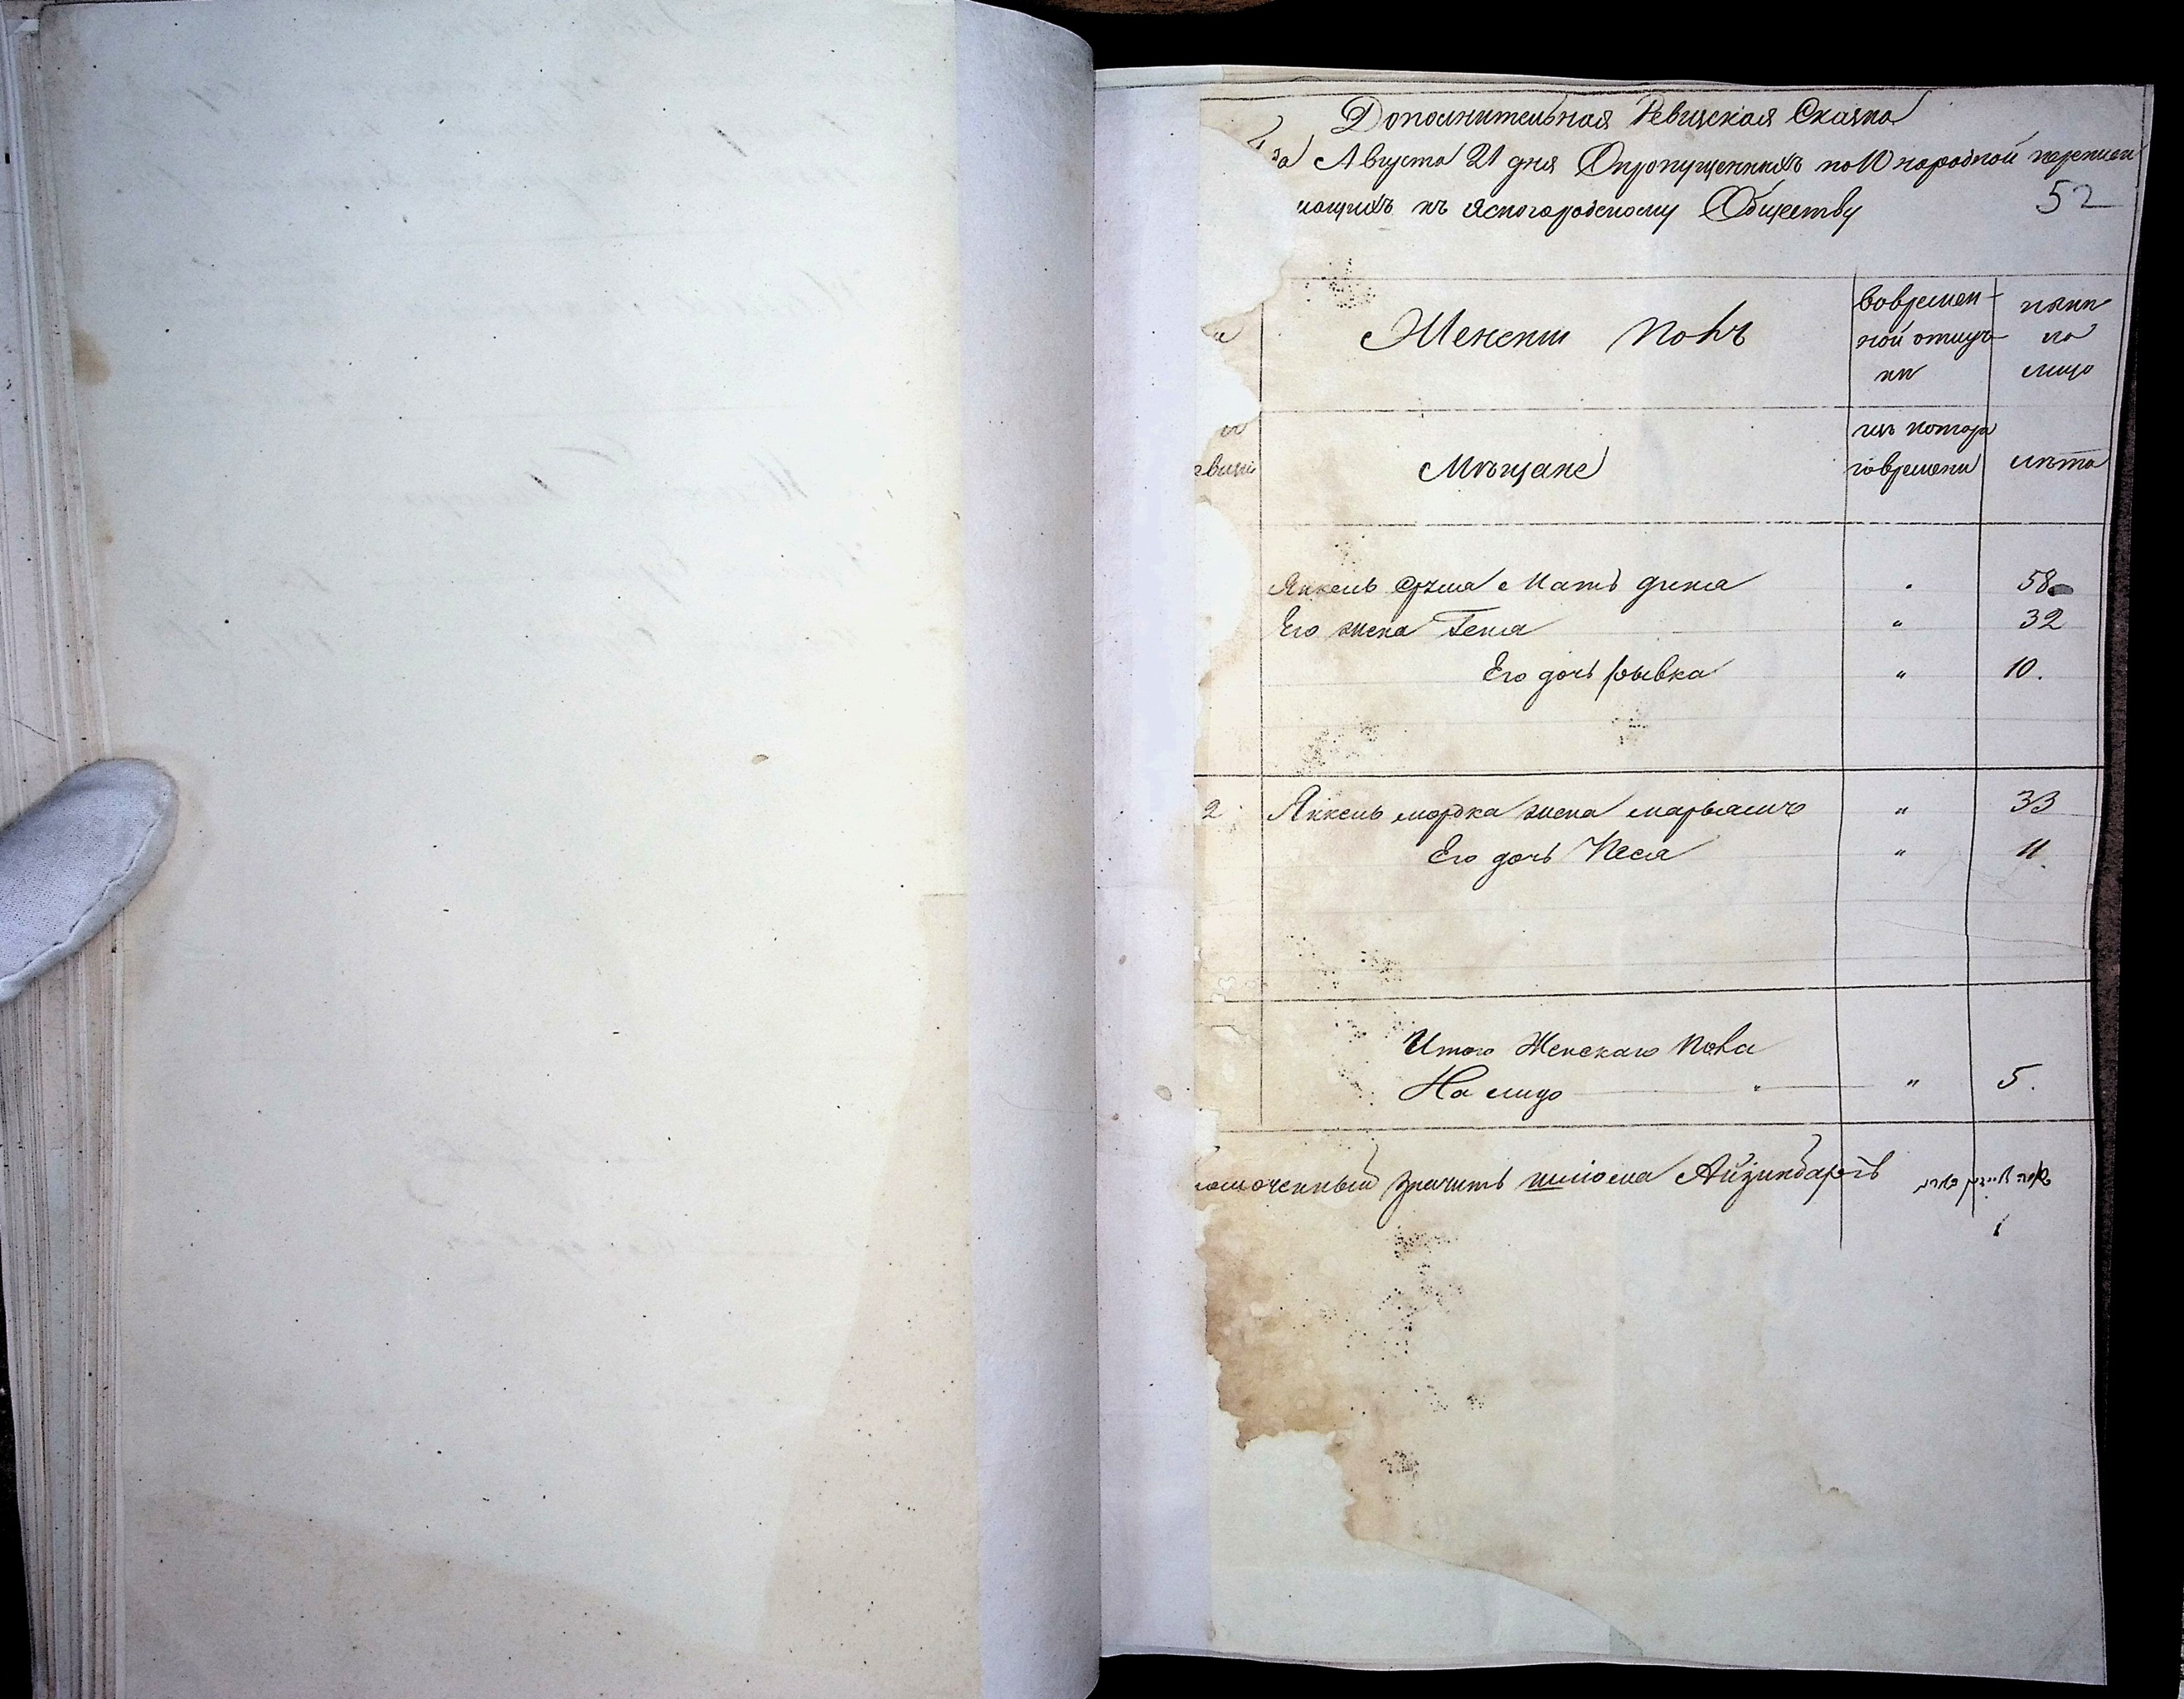 Дополнительная Ревизская Сказка
да Августа 21 дня О пропущенныхъ по 10 народной переписи
жащихъ къ Ясногородскому Обществу
52
Женски Полъ
вовремен-
ной отлуч-
ки
ныни
на
лицо
Мѣщане
изъ котора
говремени
лѣта
Янкель Сруля Мать Дина " 58
Его жена Геня " 32
Его дочь Рывка " 10.
2 Янкель мордка жена марьямъ " 33
Его дочь Песя " 11.
Итого Женскаго Пола
На лицо " " 5.
моченный значитъ Айзинбаргъ